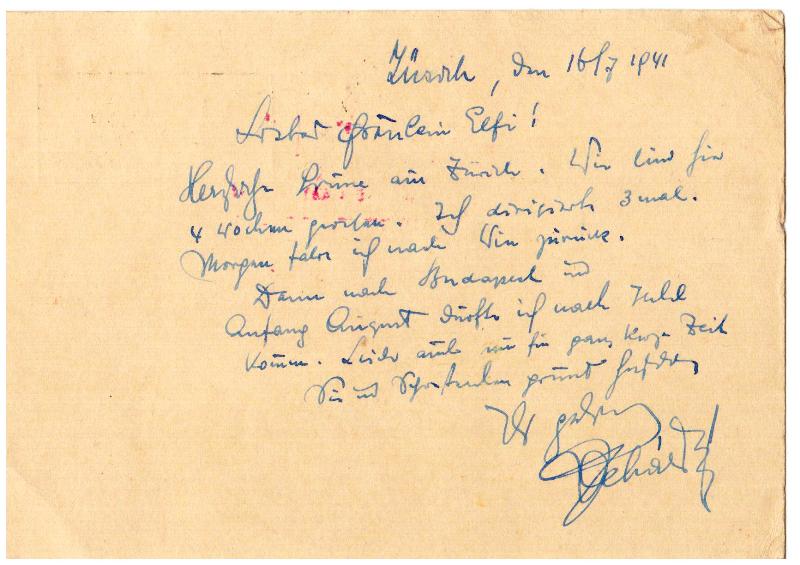 Zürich, den 16/7 1941
Liebes Fräulein Elfi!
Herzliche Grüsse aus Zürich. Wir sind hier
4 Wochen gewesen. Ich dirigierte 3 mal.
Morgen fahre ich nach Wien zurück.
Dann nach Budapest und
Anfang August dürfte ich nach
kommen. Leider auch nur für ganz kurze Zeit
Sie und grüsst
Ihr